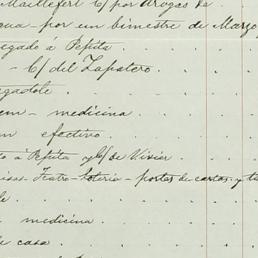 Maillefert C/ por drogas de
por un bimestre de Marzo
á Pepita
- C/ del Zapatero.
medicina
efectivo.
á Pepita y C/ de Vivier
Teatro - loteria - portes de cartas y
medicina.
de casa